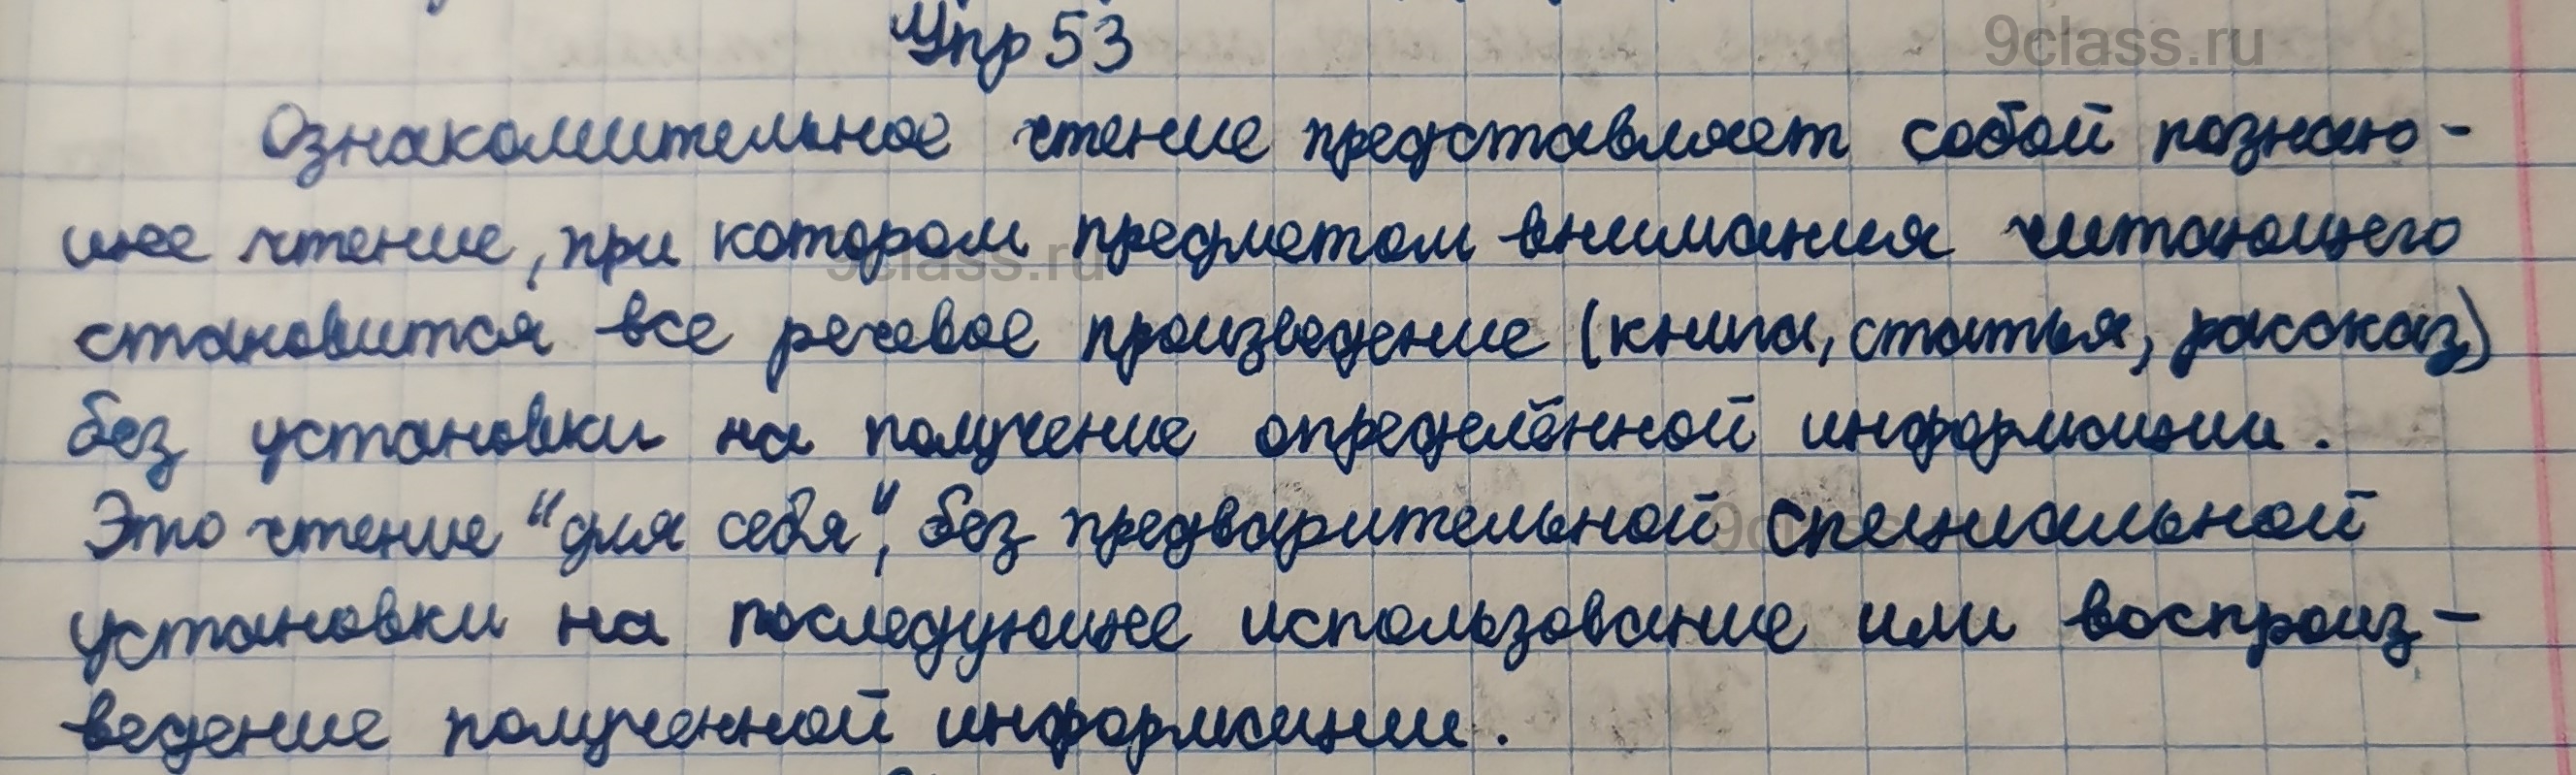 Упр 53
9class.ru
Ознакомительное чтение представляет собой познаю-
щее чтение, при котором предметом внимания читающего
9class.ru
становится все речевое произведение (книга, статья, рассказ)
без установки на получение определённой информации.
Это чтение "для себя", без предварительной специальной
установки на последующее использование или воспроиз-
ведение полученной информации.